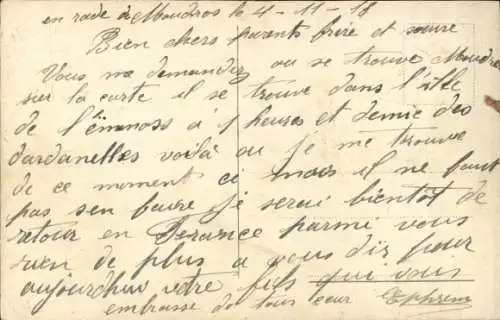 en rade de Moudros le 4-11-18
Bien chers parents frere et soeure
Vous me demandez ou se trouve Moudros
sur la carte il se trouve dans l'ille
de l'émnoss a 1 heures et demie des
dardanelles voilà ou je me trouve
de ce moment ci mais il ne faut
pas sen faire je serai bientôt de
retour en France parmi vous
rien de plus a vous dir pour
aujourdhui votre fils qui vous
embrasse de tous cœur Ephrem